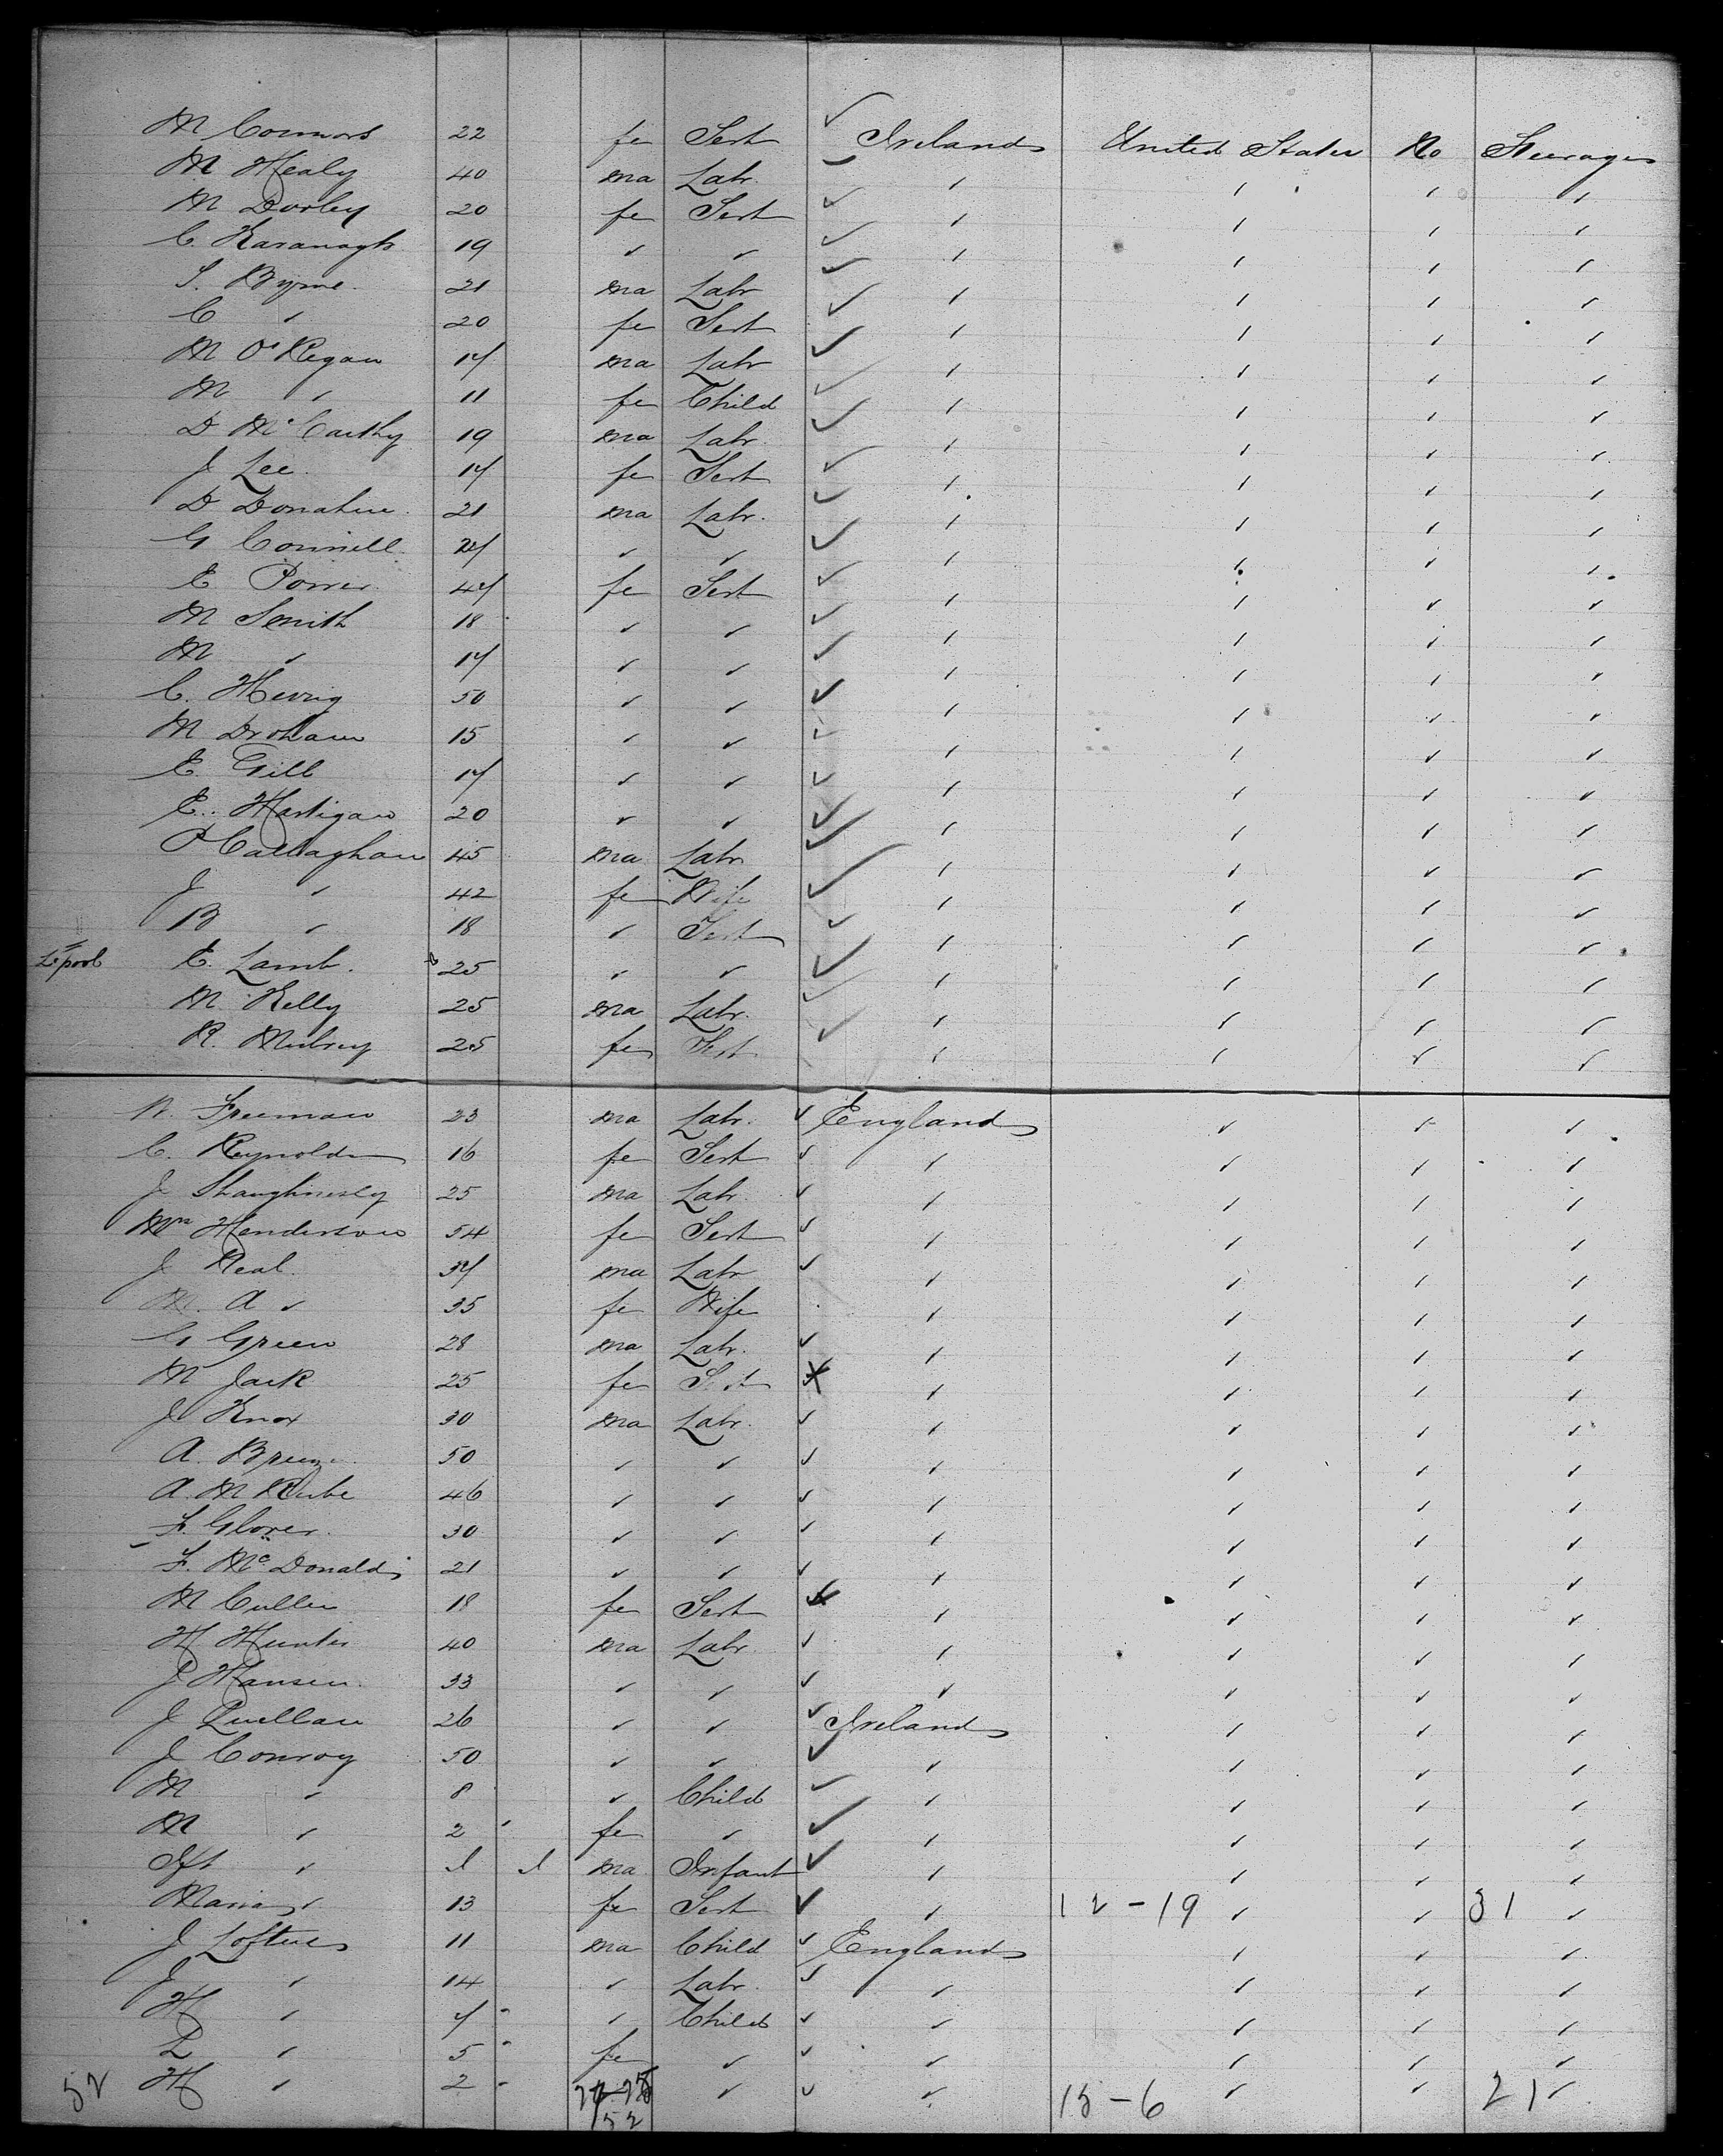 M Connors 22 fe Sert ✓ Ireland United States No Steerage
M Healy 40 ma Labr ✓ " " " "
M Dorley 20 fe Sert ✓ " " " "
C. Kavanagh 19 " " ✓ " " " "
S. Byrne 21 ma Labr ✓ " " " "
C " 20 fe Sert ✓ " " " "
M O'Regan 17 ma Labr ✓ " " " "
M " 11 fe Child ✓ " " " "
D McCarthy 19 ma Labr ✓ " " " "
J Lee 17 fe Sert ✓ " " " "
D Donahue 21 ma Labr. ✓ " " " "
G Connell " " ✓ " " " "
E Power 47 fe Sert ✓ " " " "
M Smith 18 " " ✓ " " " "
M " 17 " " ✓ " " " "
C. 50 " " ✓ " " " "
M Drohan 15 " " ✓ " " " "
E. Gill 17 " " ✓ " " " "
E. Hartigan 20 " " ✓ " " " "
P Callaghan 45 ma Labr ✓ " " " "
J " 42 fe Wife ✓ " " " "
B " 18 " Sert ✓ " " " "
L'pool E. Lamb. 25 " " ✓ " " " "
M. Kelly 25 ma Labr. ✓ " " " "
R. 25 fe Sert " " " "
Freeman 23 ma Labr. ✓ England " " "
C. Reynolds 16 fe Sert ✓ " " " "
J Shaughnessy 25 ma Labr. ✓ " " " "
Mrs Henderson 54 fe Sert ✓ " " " "
J Neal 37 ma Labr ✓ " " " "
M. A " 35 fe Wife " " " "
G Green 28 ma Labr. ✓ " " " "
M Jack 25 fe Sert " " " "
J Knox 30 ma Labr. ✓ " " " "
A. 50 " " ✓ " " " "
A. M 46 " " ✓ " " " "
F. Glover 30 " " ✓ " " " "
F. McDonald 21 " " ✓ " " " "
M Cullen 18 fe Sert " " " "
H Hunter 40 ma Labr. ✓ " " " "
J Hansen 33 " " ✓ " " " "
J Quillan 26 " " ✓ Ireland " " "
J Conroy 50 " " ✓ " " " "
M " 8 " Child ✓ " " " "
M " 2 fe " ✓ " " " "
Ift " 1 1 ma Infant ✓ " " " "
Maria " 13 fe Sert ✓ " 12-19 " " 31 "
J Loftus 11 ma Child ✓ England " " "
J " 14 " Labr. ✓ " " " "
H " 7 " Child ✓ " " " "
L " 5 fe " ✓ " " " "
52 H " 2 " ✓ " 15-6 " " 21 "
52